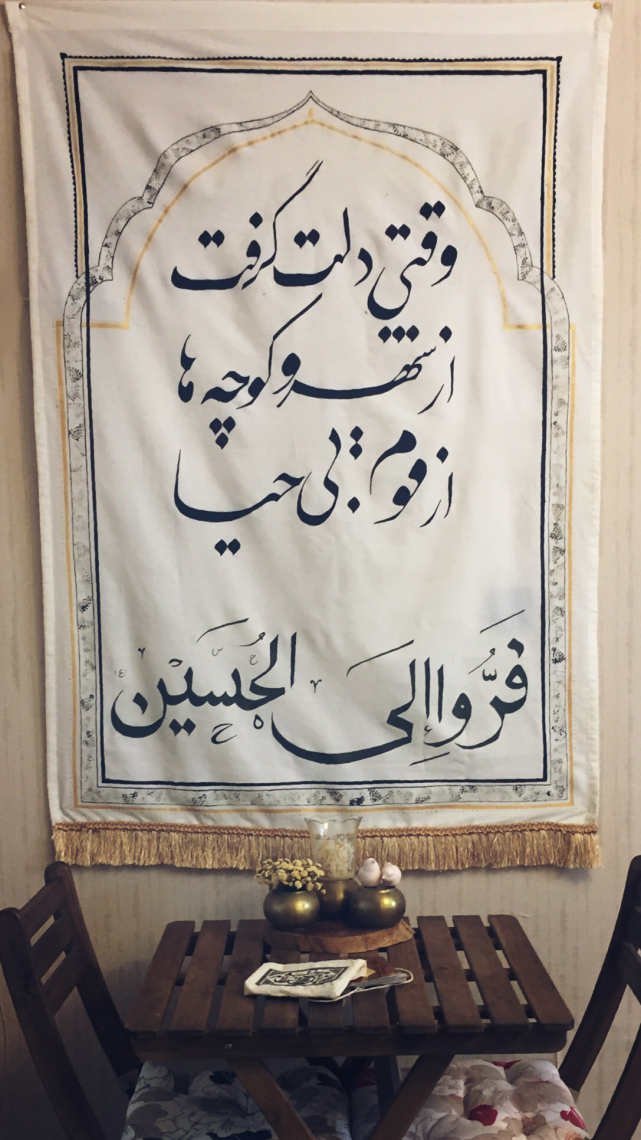 وقتی دلت گرفت
از شهر و کوچه ها
از قوم بی حیا
فَرُّوا إِلَی الحُسَین